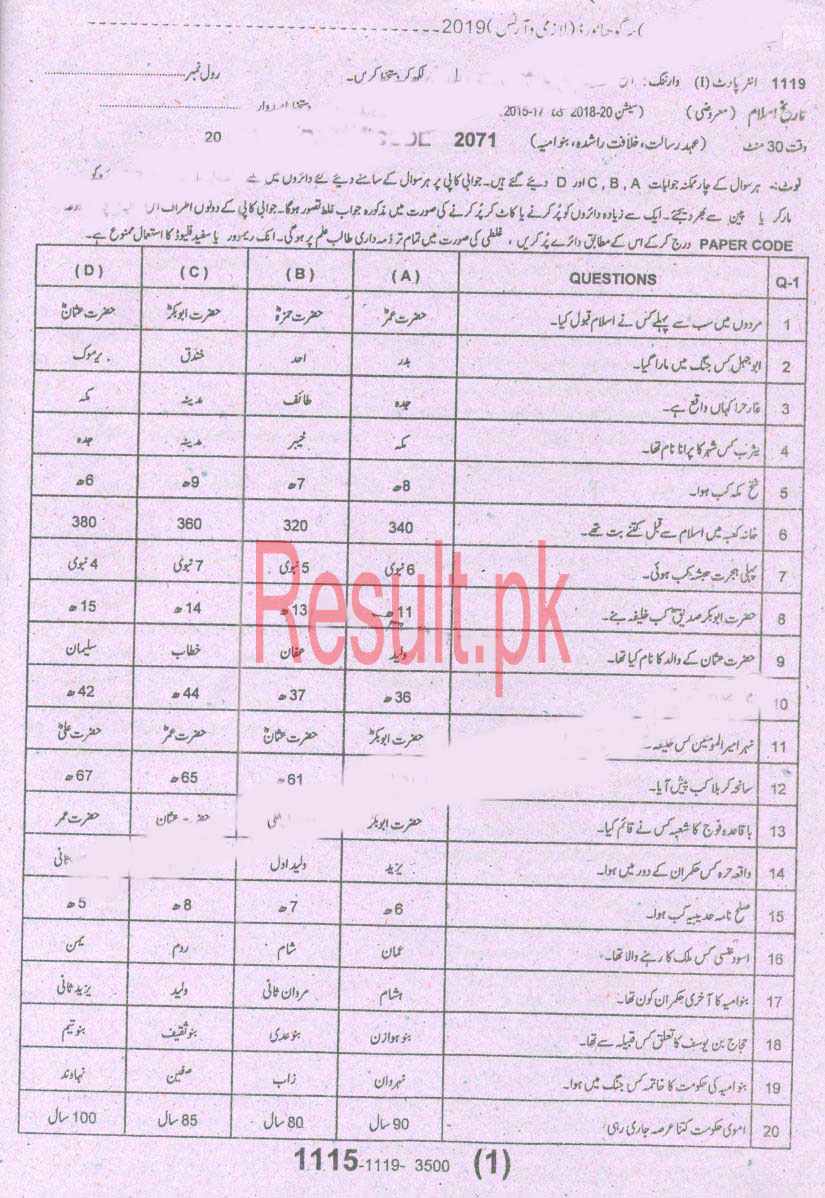 2019 (لازمی و آرٹس)
1119 انٹر پارٹ (I) وارننگ:۔ لکھ کر دستخط کریں۔ رول نمبر
تاریخ اسلام (معروضی) (سیشن 20-2018 17-2015
وقت 30 منٹ (عہد رسالت، خلافت راشدہ، بنو امیہ) 2071 20
نوٹ:۔ ہر سوال کے چار ممکنہ جوابات C, B, A اور D دیئے گئے ہیں۔ جوابی کاپی پر ہر سوال کے سامنے دیئے گئے دائروں میں سے
مارکر یا پین سے بھر دیجئے۔ ایک سے زیادہ دائروں کو پُر کرنے یا کاٹ کر پُر کرنے کی صورت میں مذکورہ جواب غلط تصور ہوگا۔ جوابی کاپی کے دونوں اطراف
PAPER CODE درج کر کے اس کے مطابق دائرے پُر کریں، غلطی کی صورت میں تمام تر ذمہ داری طالب علم پر ہوگی۔ انک ریموور یا سفید فلیوڈ کا استعمال ممنوع ہے۔
Q-1 QUESTIONS (A) (B) (C) (D)
1 مردوں میں سب سے پہلے کس نے اسلام قبول کیا۔ حضرت عمرؓ حضرت حمزہؓ حضرت ابوبکرؓ حضرت عثمانؓ
2 ابوجہل کس جنگ میں مارا گیا۔ بدر احد خندق یرموک
3 غار حرا کہاں واقع ہے۔ جدہ طائف مدینہ مکہ
4 یثرب کس شہر کا پرانا نام تھا۔ مکہ خیبر مدینہ جدہ
5 فتح مکہ کب ہوا۔ 8ھ 7ھ 9ھ 6ھ
6 خانہ کعبہ میں اسلام سے قبل کتنے بت تھے۔ 340 320 360 380
7 پہلی ہجرت حبشہ کب ہوئی۔ 6 نبوی 5 نبوی 7 نبوی 4 نبوی
8 حضرت ابوبکر صدیقؓ کب خلیفہ بنے۔ 11ھ 13ھ 14ھ 15ھ
9 حضرت عثمان کے والد کا نام کیا تھا۔ ولید عفان خطاب سلیمان
10 36ھ 37ھ 44ھ 42ھ
11 نہر امیر المومنین کس خلیفہ حضرت ابوبکرؓ حضرت عثمانؓ حضرت عمرؓ حضرت علیؓ
12 سانحہ کربلا کب پیش آیا۔ 61ھ 65ھ 67ھ
13 باقاعدہ فوج کا شعبہ کس نے قائم کیا۔ حضرت ابوبکر عثمان حضرت عمر
14 واقعہ حرہ کس حکمران کے دور میں ہوا۔ یزید ولید اول ثانی
15 صلح نامہ حدیبیہ کب ہوا۔ 6ھ 7ھ 8ھ 5ھ
16 اسود عنسی کس ملک کا رہنے والا تھا۔ عمان شام روم یمن
17 بنو امیہ کا آخری حکمران کون تھا۔ ہشام مروان ثانی ولید یزید ثانی
18 حجاج بن یوسف کا تعلق کس قبیلہ سے تھا۔ بنو ہوازن بنو عدی بنو ثقیف بنو تیم
19 بنو امیہ کی حکومت کا خاتمہ کس جنگ میں ہوا۔ نہروان زاب صفین نہاوند
20 اموی حکومت کتنا عرصہ جاری رہی 90 سال 80 سال 85 سال 100 سال
1115-1119- 3500 (1)
Result.pk